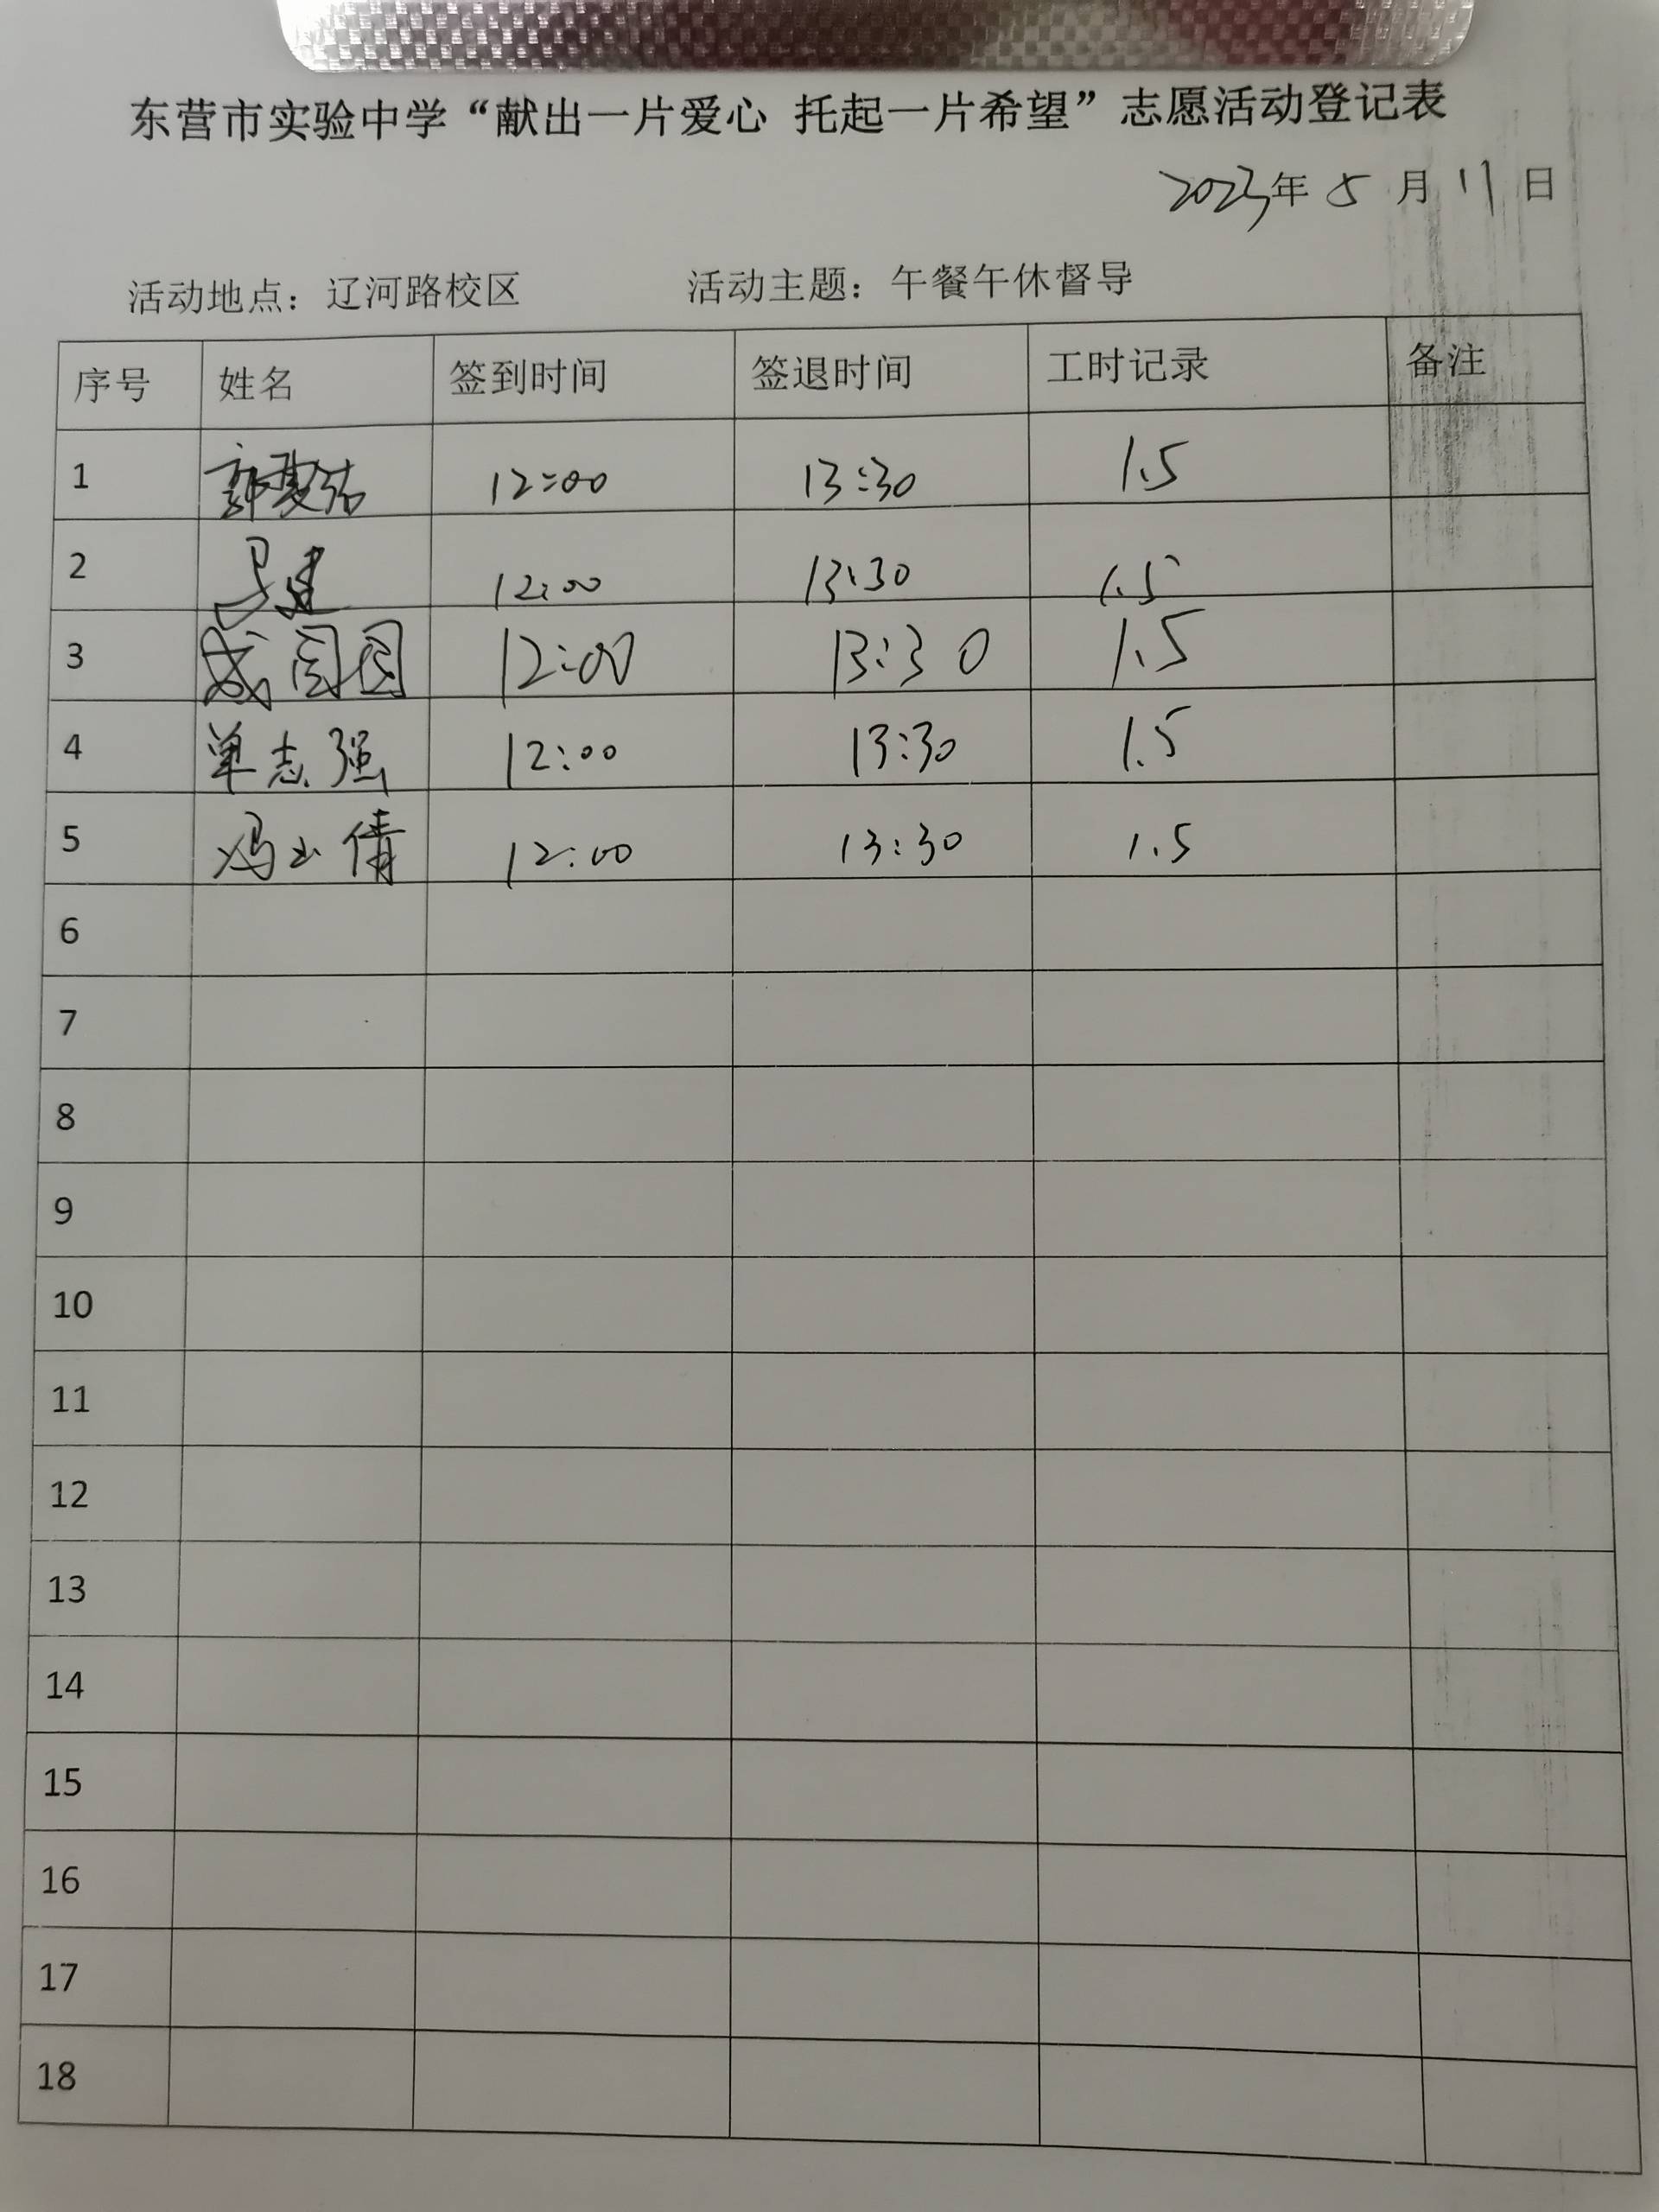 东营市实验中学“献出一片爱心 托起一片希望”志愿活动登记表
2023年 5 月 11 日
活动地点：辽河路校区 活动主题：午餐午休督导
序号 姓名 签到时间 签退时间 工时记录 备注
1 12:00 13:30 1.5
2 12:00 13:30 1.5
3 12:00 13:30 1.5
4 单志强 12:00 13:30 1.5
5 冯 倩 12:00 13:30 1.5
6
7
8
9
10
11
12
13
14
15
16
17
18